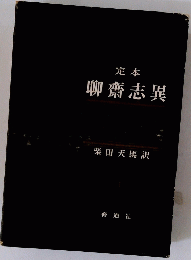 定本
聊齋志異
柴田天馬訳
修道社